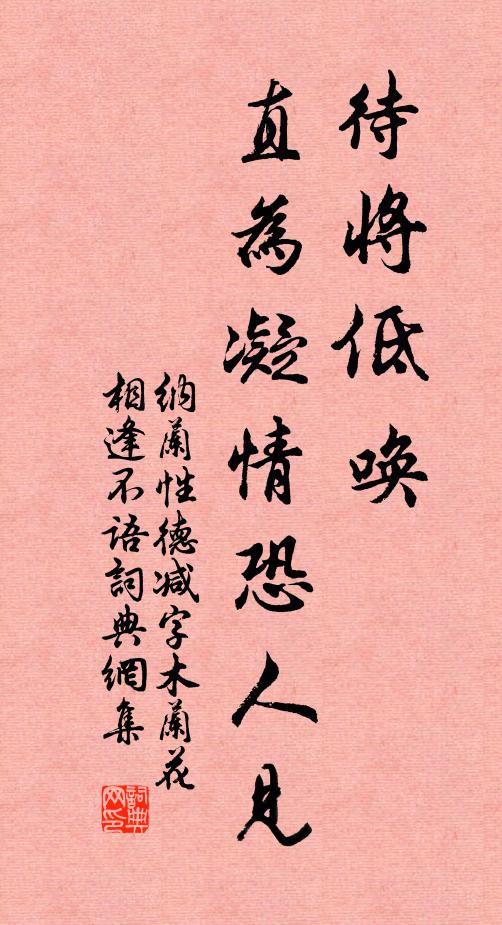 待將低喚
直為凝情恐人見
納蘭性德减字木蘭花
相逢不語詞典網集
詞典网印